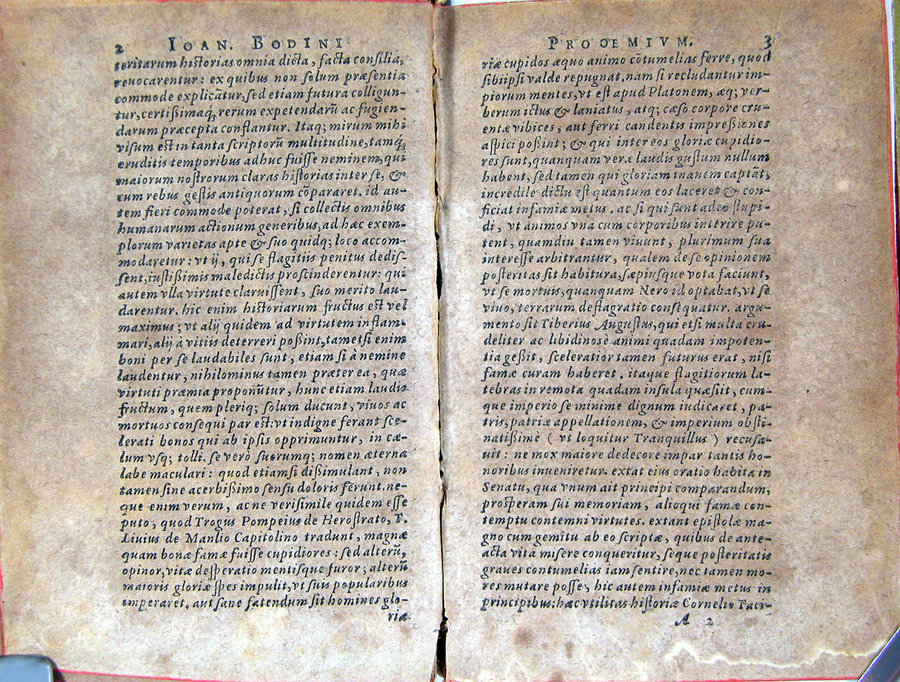 2 IOAN. BODINI
teritarum historias omnia dicta, facta consilia,
revocarentur: ex quibus non solum præsentia
commode explicãtur, sed etiam futura colligun-
tur, certißimaq; rerum expetendarũ ac fugien-
darum præcepta conflantur. Itaq; mirum mihi
visum est in tanta scriptorũ multitudine, tamq;
eruditis temporibus adhuc fuisse neminem, qui
maiorum nostrorum claras historias inter se, &
cum rebus gestis antiquorum cõpararet. id au-
tem fieri commode poterat, si collectis omnibus
humanarum actionum generibus, ad hæc exem-
plorum varietas apte & suo quidq; loco accom-
modaretur: vt ij, qui se flagitiis penitus dedis-
sent, iustißimis maledictis proscinderentur: qui
autem vlla virtute claruissent, suo merito lau-
darentur. hic enim historiarum fructus est vel
maximus; vt alij quidem ad virtutem inflam-
mari, alij à vitiis deterreri poßint, tametsi enim
boni per se laudabiles sunt, etiam si à nemine
laudentur, nihilominus tamen præter ea, quæ
virtuti præmia proponũtur, hunc etiam laudis
fructum, quem pleriq; solum ducunt, vivos ac
mortuos consequi par est: vt indigne ferant sce-
lerati bonos qui ab ipsis opprimuntur, in cæ-
lum vsq; tolli. se verò suorumq; nomen æterna
labe maculari: quod etiamsi dißimulant, non
tamen sine acerbißimo sensu doloris ferunt. ne-
que enim verum, ac ne verisimile quidem esse
puto, quod Trogus Pompeius de Herostrato, T.
Livius de Manlio Capitolino tradunt, magnæ
quam bonæ famæ fuisse cupidiores: sed alterũ,
opinor, vitæ desperatio mentisque furor; alterũ
maioris gloriæ spes impulit, vt suis popularibus
imperaret. aut sane fatendum sit homines glo-
riæ
PROOEMIVM. 3
riæ cupidos æquo animo cõtumelias ferre, quod
sibiipsi valde repugnat. nam si recludantur im-
piorum mentes, vt est apud Platonem, æq; ver-
berum ictus & laniatus, atq; cæso corpore cru-
entæ vibices, aut ferri candentis impreßiones
aspici poßint; & qui inter eos gloriæ cupidio-
res sunt, quanquam veræ laudis gustum nullum
habent, sed tamen qui gloriam inanem captãt,
incredile dictu est quantum eos laceret & con-
ficiat infamiæ metus. ac si qui sunt adeo stupi-
di, vt animos vna cum corporibus interire pu-
tent, quamdiu tamen vivunt, plurimum sua
interesse arbitrantur, qualem de se opinionem
posteritas sit habitura, sæpiusque vota faciunt,
vt se mortuis, quanquam Nero id optabat, vt se
vivo, terrarum deflagratio consequatur. argu-
mento sit Tiberius Augustus, qui etsi multa cru-
deliter ac libidinose animi quadam impoten-
tia geßit, sceleratior tamen futurus erat, nisi
famæ curam haberet. itaque flagitiorum la-
tebras in remota quadam insula quæsiit, cum-
que imperio se minime dignum indicaret, pa-
tris, patriæ appellationem, & imperium obsti-
natißimè ( vt loquitur Tranquillus ) recusa-
vit: ne mox maiore dedecore impar tantis ho-
noribus inveniretur. extat eius oratio habita in
Senatu, qua vnum ait principi comparandum,
prosperam sui memoriam, alioqui famæ con-
temptu contemni virtutes. extant epistolæ ma-
gno cum gemitu ab eo scriptæ, quibus de ante-
acta vita misere conqueritur, seque posteritatis
graves contumelias iam sentire, nec tamen mo-
res mutare posse, hic autem infamiæ metus in
principibus: hæc vtilitas historiæ Cornelio Taci-
A 2